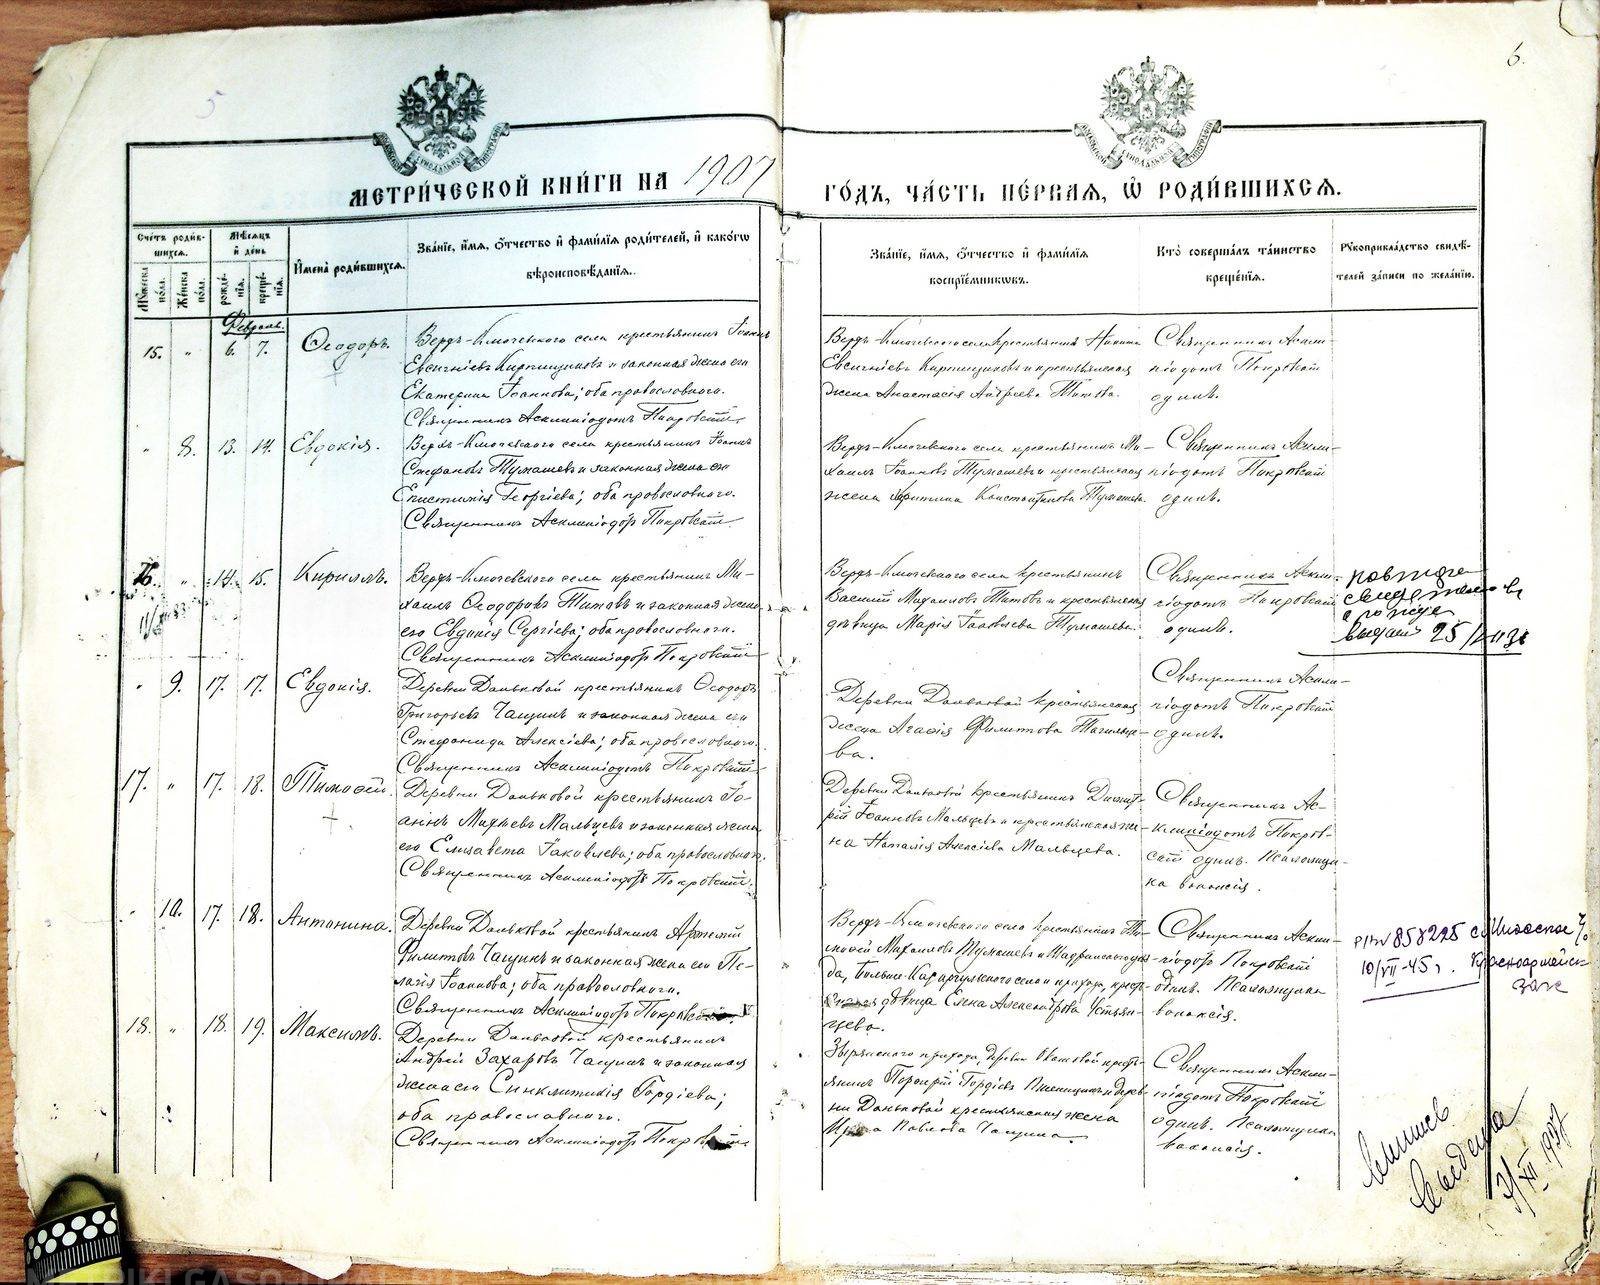 5
6.
МЕТРИ́ЧЕСКОЙ КНИ́ГИ НА 1907
ГО́ДЪ, ЧА́СТЬ ПЕ́РВАЯ, Ѡ РОДИ́ВШИХСЯ.
Сче́тъ роди́в-
шихся.
Мѹжеска по́ла.
Же́нска по́ла.
Мѣ́сяцъ
и҆ де́нь
рожде́-
нїѧ.
креще́-
нїѧ.
И҆мена̀ роди́вшихся.
Зва́нїе, и҆́мѧ, ѻ҆́тчество и҆ фами́лїѧ роди́телей, и҆ како́гѡ
вѣроисповѣ́данїѧ.
Зва́нїе, и҆́мѧ, ѻ҆́тчество и҆ фами́лїѧ
воспрїе́мникѡвъ.
Кто̀ соверша́лъ та́инство
креще́нїѧ.
Рѹкоприкла́дство свидѣ́-
телей за́писи по жела́нїю.
Февраль.
15. " 6. 7. Ѳеодоръ.
Верхъ-Ключевского села крестьянинъ Іоаннъ
Евсигніевъ Кирпищиковъ и законная жена его
Екатерина Іоаннова; оба православного.
Священникъ Асклипіодотъ Покровскій
Верхъ-Ключевского села крестьянинъ
Евсигніевъ Кирпищиковъ и крестьянская
жена Анастасія Андреева Титова.
Священникъ Аскли-
піодотъ Покровскій
одинъ.
" 8. 13. 14. Евдокія.
Верхъ-Ключевского села крестьянинъ Іоаннъ
Стефановъ Тумашевъ и законная жена его
Епистимія Георгіева; оба православного.
Священникъ Асклипіодотъ Покровскій
Верхъ-Ключевского села крестьянинъ Ми-
хаилъ Іоанновъ Тумашевъ и крестьянская
жена Константинова Тумашева
Священникъ Аскли-
піодотъ Покровскій
одинъ.
16. " 14. 15. Кириллъ.
Верхъ-Ключевского села крестьянинъ Ми-
хаилъ Ѳеодоровъ Титовъ и законная жена
его Евдокія Сергіева; оба православного.
Священникъ Асклипіодотъ Покровскій
Верхъ-Ключевского села крестьянинъ
Василій Михаиловъ Титовъ и крестьянская
дѣвица Марія Іаковлева Тумашева.
Священникъ Аскли-
піодотъ Покровскій
одинъ.
повтор
свидетельство
о рожде
выдано 25/
" 9. 17. 17. Евдокія.
Деревни Даньковой крестьянинъ Ѳеодоръ
Григорьевъ Чащинъ и законная жена его
Стефанида Алексіева; оба православного.
Священникъ Асклипіодотъ Покровскій
Деревни Даньковой крестьянская
жена Агафія Филиппова Тагильце-
ва.
Священникъ Аскли-
піодотъ Покровскій
одинъ.
17. " 17. 18. Тимоѳей.
Деревни Даньковой крестьянинъ Іо-
аннъ Матѳіевъ Мальцевъ и законная жена
его Елизавета Іаковлева; оба православного.
Священникъ Асклипіодотъ Покровскій.
Деревни Даньковой крестьянинъ Димит-
рій Іоанновъ Мальцевъ и крестьянская же-
на Наталія Алексіева Мальцева.
Священникъ Ас-
клипіодотъ Покров-
скій одинъ. Псаломщи-
ка вакансія.
" 10. 17. 18. Антонина.
Деревни Даньковой крестьянинъ Артемій
Филипповъ Чащинъ и законная жена его Пе-
лагія Іоаннова; оба православного.
Священникъ Асклипіодотъ Покровскій.
Верхъ-Ключевского села крестьянинъ Ти-
моѳей Михаиловъ Тумашевъ и Шадринского уѣз-
да, Больше-Каргапольского села и прихода, крест.
дѣвица Елена Александрова Устьян-
цева.
Священникъ Аскли-
піодотъ Покровскій
одинъ. Псаломщика
вакансія.
№ 858225
10/VII-45 г. Красноармейск-
18. " 18. 19. Максимъ.
Деревни Даньковой крестьянинъ
Андрей Захаровъ Чащинъ и законная
жена его Синклитикія Гордіева;
оба православного.
Священникъ Асклипіодотъ Покровскій
Зырянского прихода, деревни крестъ-
янинъ Порфирій Гордіевъ Пшеницынъ и дерев-
ни Даньковой крестьянская жена
Павлова Чащина.
Священникъ Аскли-
піодотъ Покровскій
одинъ. Псаломщика
вакансія.
3/XII 1937